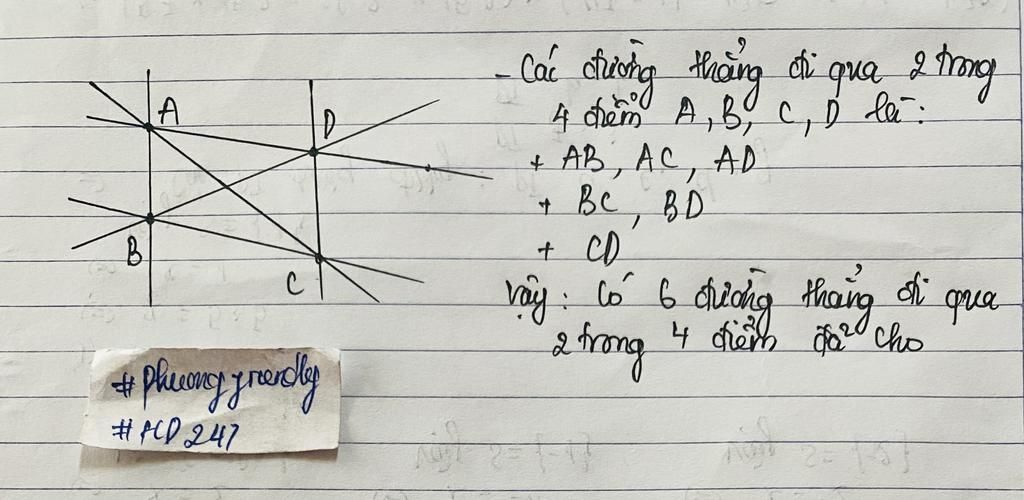 A
D
B
C
- Các đường thẳng đi qua 2 trong
4 điểm A, B, C, D là:
+ AB, AC, AD
+ BC, BD
+ CD
Vậy: Có 6 đường thẳng đi qua
2 trong 4 điểm đã cho
#phuong
247